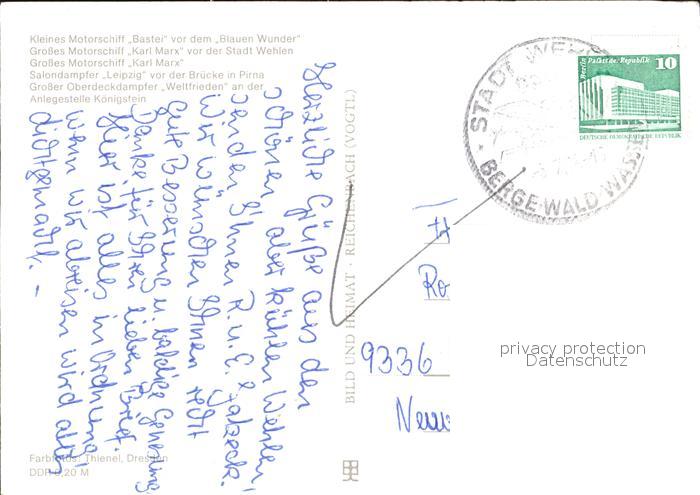 Kleines Motorschiff „Bastei" vor dem „Blauen Wunder"
Großes Motorschiff „Karl Marx" vor der Stadt Wehlen
Großes Motorschiff „Karl Marx"
Salondampfer „Leipzig" vor der Brücke in Pirna
Großer Oberdeckdampfer „Weltfrieden" an der
Anlegestelle Königstein
Herzliche Grüße aus den
schönen aber kühlen Wehlen,
senden Ihnen R. u. E.
Wir wünschen Ihnen recht
gute Besserung u. baldige Genesung
Danke für Ihren lieben Brief.
Hier ist alles in Ordnung,
wenn wir abreisen wird alles
dichtgemacht. –
Farbfotos: Thienel, Dresden
DDR 0,20 M
BILD UND HEIMAT · REICHENBACH (VOGTL)
STADT WEHLEN
BERGE-WALD-WASSER
Berlin Palast der Republik
10
DEUTSCHE DEMOKRATISCHE REPUBLIK
Ro
9336
privacy protection
Datenschutz